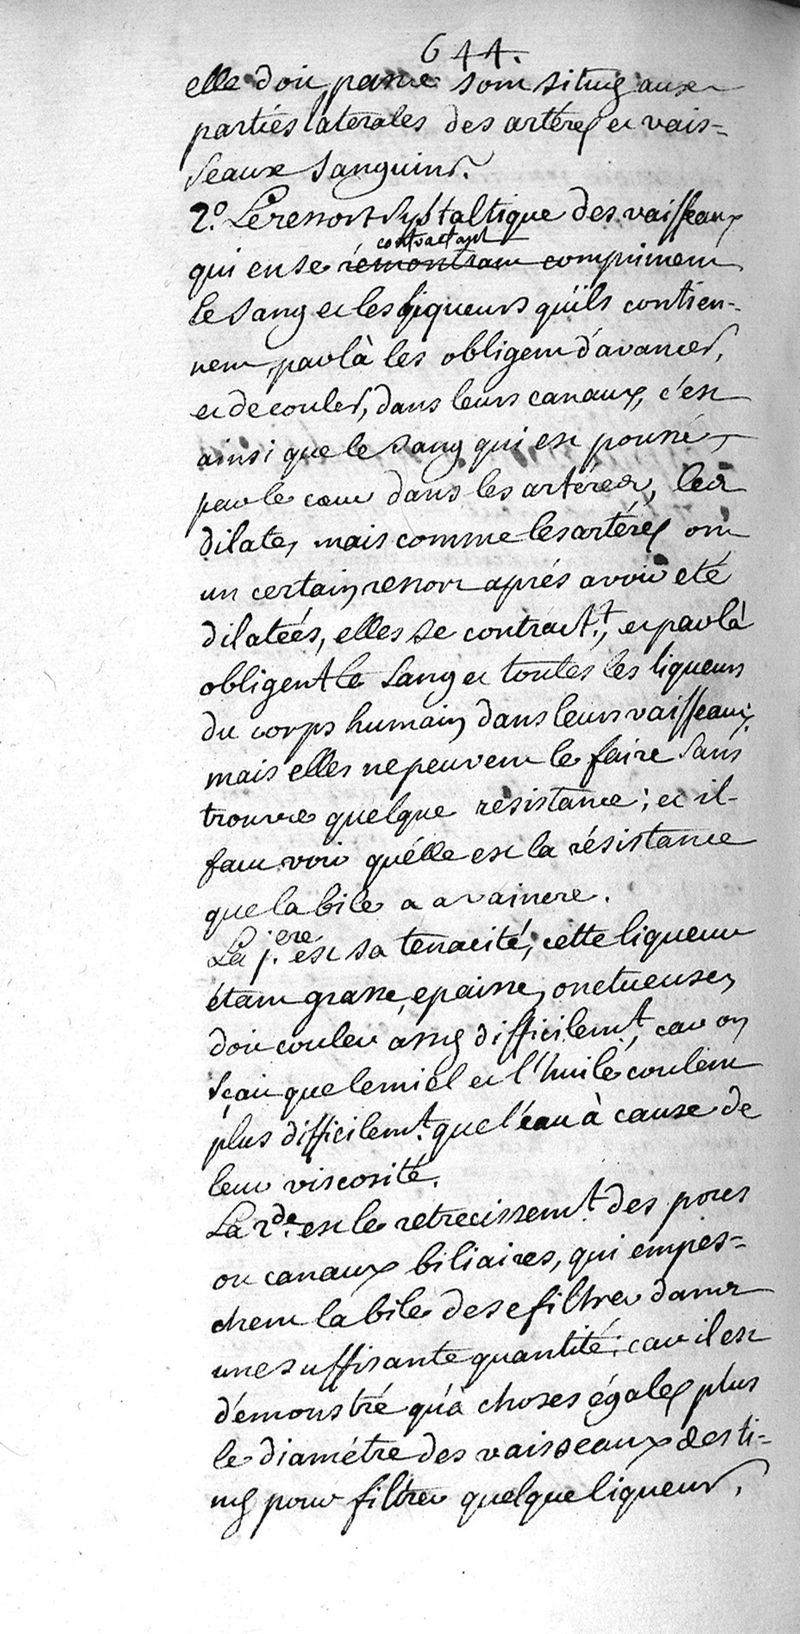 644.
elle doit passer sont situez aux
parties laterales des artéres et vais=
seaux sanguins.
2.º Le ressort systaltique des vaisseaux
contractant
qui en se remontrant compriment
le sang et les liqueurs qu'ils contien=
nent, par là les obligent d'avancer,
et de couler, dans leurs canaux, c'est
ainsi que le sang qui est poussé
par le cœur dans les artéres, les
dilate, mais comme les artéres ont
un certain ressort aprés avoir eté
dilateés, elles se contract.t, et par là
obligent le sang et toutes les liqueurs
du corps humain dans leurs vaisseaux;
mais elles ne peuvent le faire sans
trouver quelque résistance; et il
faut voir quélle est la résistance
que la bile a a vaincre.
La j.ere ést sa tenacité; cette liqueur
étant grasse, epaisse, onctueuse,
doit couler assez difficilem.t, car on
sçait que le miel et l'huile coulent
plus difficilem.t que l'eau à cause de
leur viscosité.
La 2.de est le retrecissem.t des pores
ou canaux biliaires, qui empes=
chent la bile de se filtrer dans
une suffisante quantité; car il est
démonstré qu'à choses égales plus
le diamétre des vaisseaux desti=
nez pour filtrer quelque liqueur,